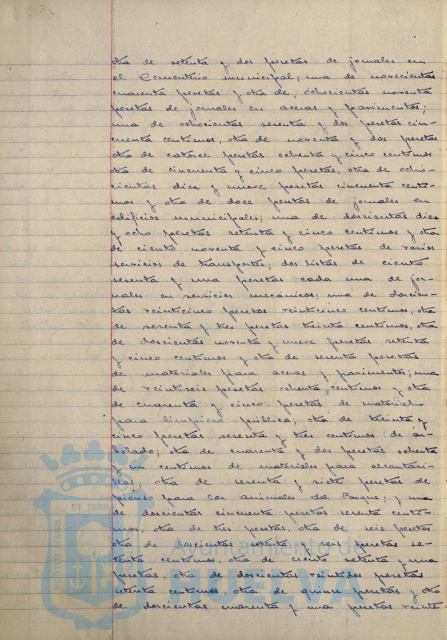 otra de setenta y dos pesetas de jornales en
el Cementerio municipal; una de novecientas
cuarenta pesetas y otra de ochocientas noventa
pesetas de jornales en aceras y pavimentos;
una de ochocientas sesenta y dos pesetas cin-
cuenta centimos, otra de noventa y dos pesetas
otra de catorce pesetas ochenta y cinco centimos
otra de cincuenta y cinco pesetas, otra de ocho-
cientas diez y nueve pesetas cincuenta centi-
mos y otra de doce pesetas de jornales en
edificios municipales; una de doscientas diez
y ocho pesetas setenta y cinco centimos y otra
de ciento noventa y cinco pesetas de varios
servicios de transportes; dos listas de ciento
sesenta y una pesetas cada una de jor-
nales en servicios mecanicos; una de doscien-
tas veinticinco pesetas veinticinco centimos, otra
de sesenta y tres pesetas treinta centimos, otra
de doscientas noventa y nueve pesetas setenta
y cinco centimos y otra de sesenta pesetas
de materiales para aceras y pavimentos; una
de veintiseis pesetas ochenta centimos y otra
de cuarenta y cinco pesetas de material
para limpieza pública; otra de treinta y
cinco pesetas sesenta y tres centimos de ar-
bolado; otra de cuarenta y dos pesetas
y un centimos de materiales para alcantari-
llas; otra de sesenta y siete pesetas de
pienso para los animales del Parque; y una
de doscientas cincuenta pesetas sesenta centi-
mos, otra de tres pesetas, otra de seis pesetas
otra de doscientas y seis pesetas se-
tenta centimos, otra de ciento setenta y una
pesetas, otra de doscientas veintidos pesetas
setenta centimos, otra de quince pesetas y otra
de doscientas cuarenta y una pesetas veinte
ET TERRA
Ayuntamiento de